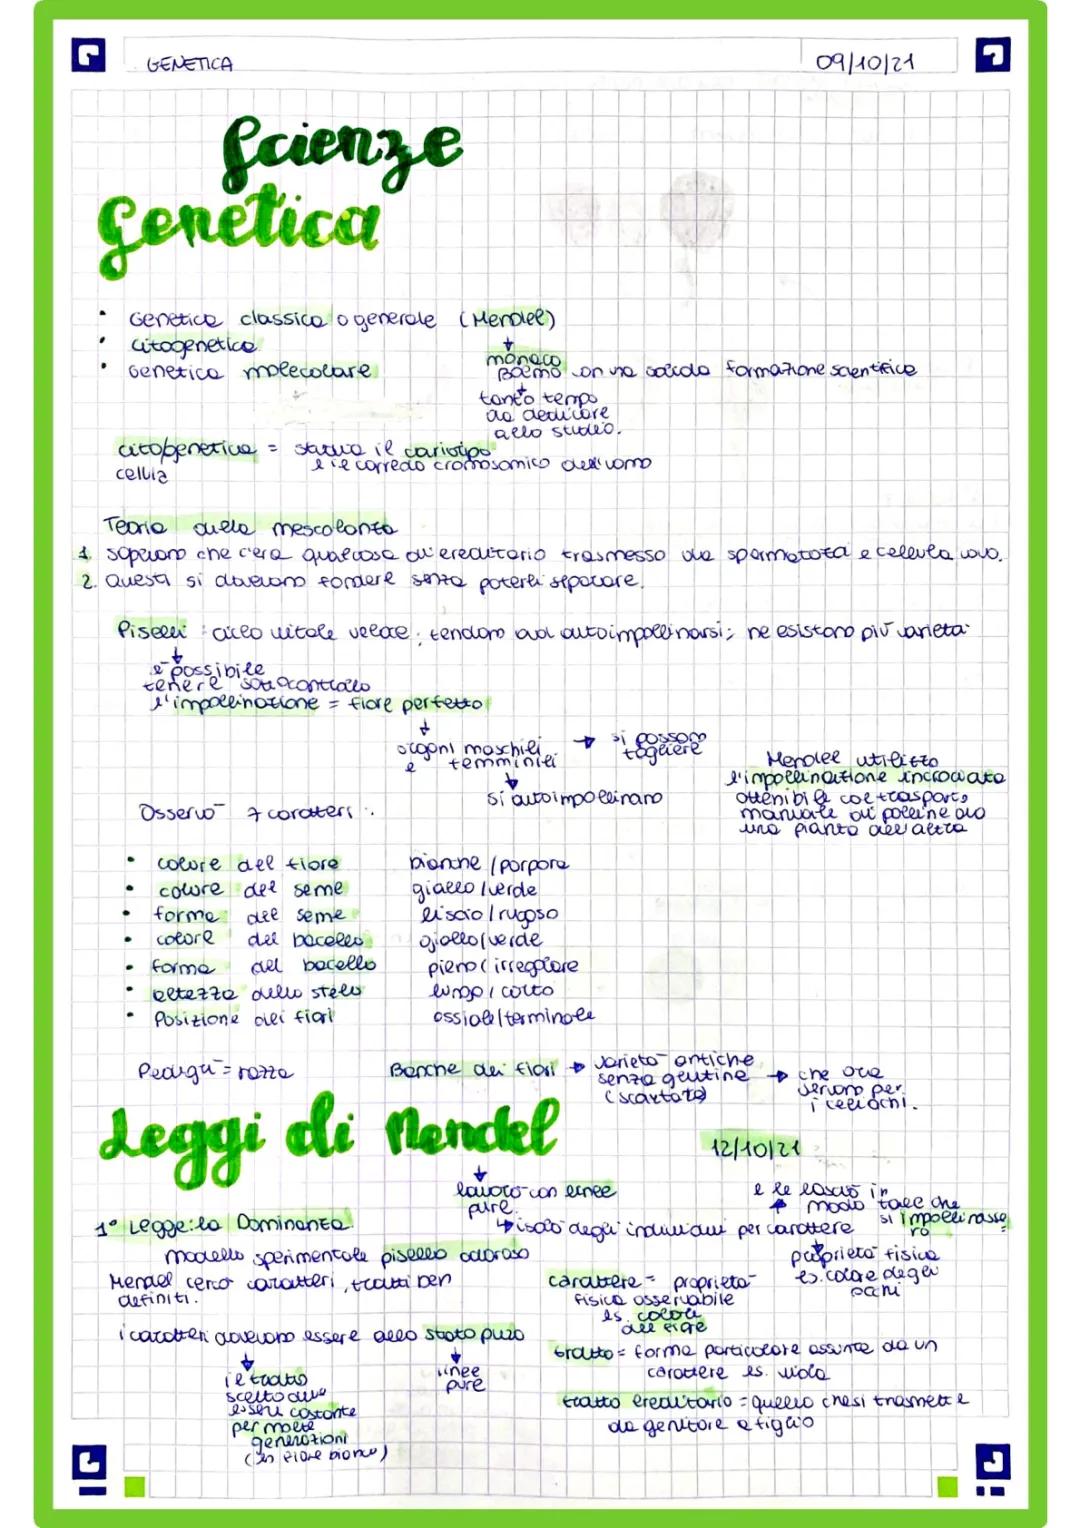 GENETICA
09/10/21
Scienze
Genetica
• Genetica classica o generale (Mendel)
• citogenetica
• Genetica molecolare
monaco
Boemo con una solida formazione scientifica
tanto tempo
da dedicare
allo studio.
citogenetica = studia il cariotipo
cellula
è il corredo cromosomico dell'uomo
Teoria della mescolanza
1. Sapevano che c'era qualcosa di ereditario trasmesso da spermatozoi e cellula uovo.
2. Questi si dovevano fondere senza poterli separare.
Piselli: ciclo vitale veloce; tendono ad autoimpollinarsi; ne esistono più varietà
è possibile
tenere sotto controllo
l'impollinazione = fiore perfetto
organi maschili
e femminili
si possono
togliere
si autoimpollinano
Mendel utilizzò
l'impollinazione incrociata
ottenibile col trasporto
manuale di polline da
una pianta all'altra
Osservò 7 caratteri:
• colore del fiore bianche/porpora
• colore del seme giallo/verde
• forma del seme liscio/rugoso
• colore del bacello giallo/verde
• forma del bacello pieno/irregolare
• altezza dello stelo lungo/corto
• Posizione dei fiori assiale/terminale
Pedigrì = razza
Banche dei fiori
varietà antiche
senza glutine
(scartate)
che ora
servono per
i celiachi.
Leggi di Mendel
12/10/21
lavorò con linee
pure.
isolò degli individui per carattere
e le lasciò in
modo tale che
si impollinasse
ro
1° Legge: la Dominanza
modello sperimentale pisello odoroso
Mendel cercò caratteri, tratti ben
definiti.
carattere = proprietà
fisica osservabile
es. colore
del fiore
proprietà fisica
es. colore degli
i caratteri dovevano essere allo stato puro
il tratto
scelto deve
essere costante
per molte
generazioni
(es fiore bianco)
linee
pure
tratto = forma particolare assunta da un
carattere es. viola
tratto ereditario = quello che si trasmette
da genitore a figlio